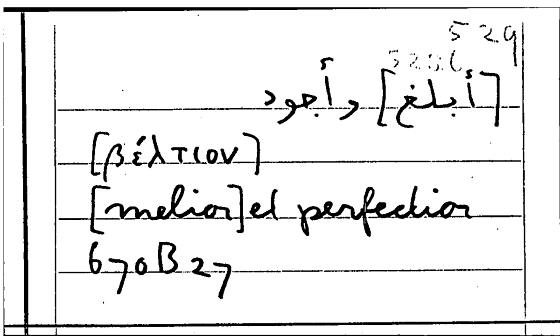 529
[أبلغ] وأجود
[βέλτιον]
[melior] et perfectior
670B27